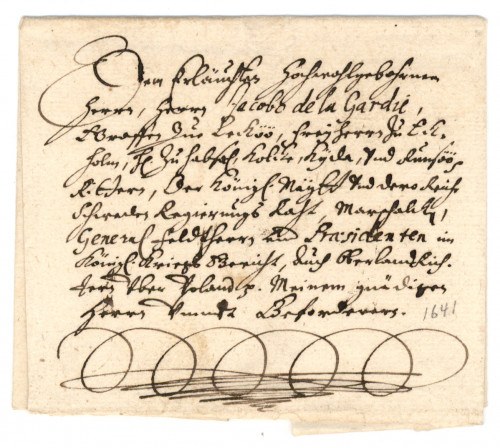 Dem Erläuchten Hochwohlgebohrnen
Herrn, Herrn Jacobo de la Gardie,
Graffen Zue Lecköö, Freyherrn Zu Eck-
holm, H. Zu Habsahl, Kolke, Kyda, Vnd Runsöö,
Rittern, Der Königl. Mäyst. Vnd dero Reiche
Schweden Regierungs Raht, Marschaln,
General Feldtherrn und Præsidenten im
Königl. Kriegs Gericht,
über. Meinem gnädigen
Herrn Beforderern. 1641